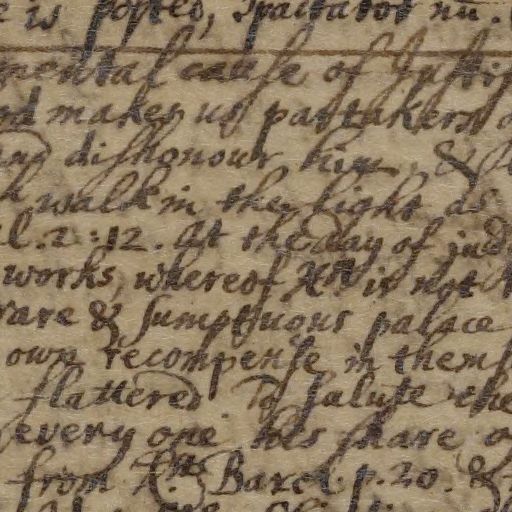 is posted, Spactator nu.
mental cause of Justi
makes us partakers
and dishonour him, &
walk in the light as
2:12. At the day of jud
works, whereof Xt is not
rare & sumptuous palace
own recompense in thems
flattered To salute the
every one his share o
from Xt. Barcl. p. 20. &